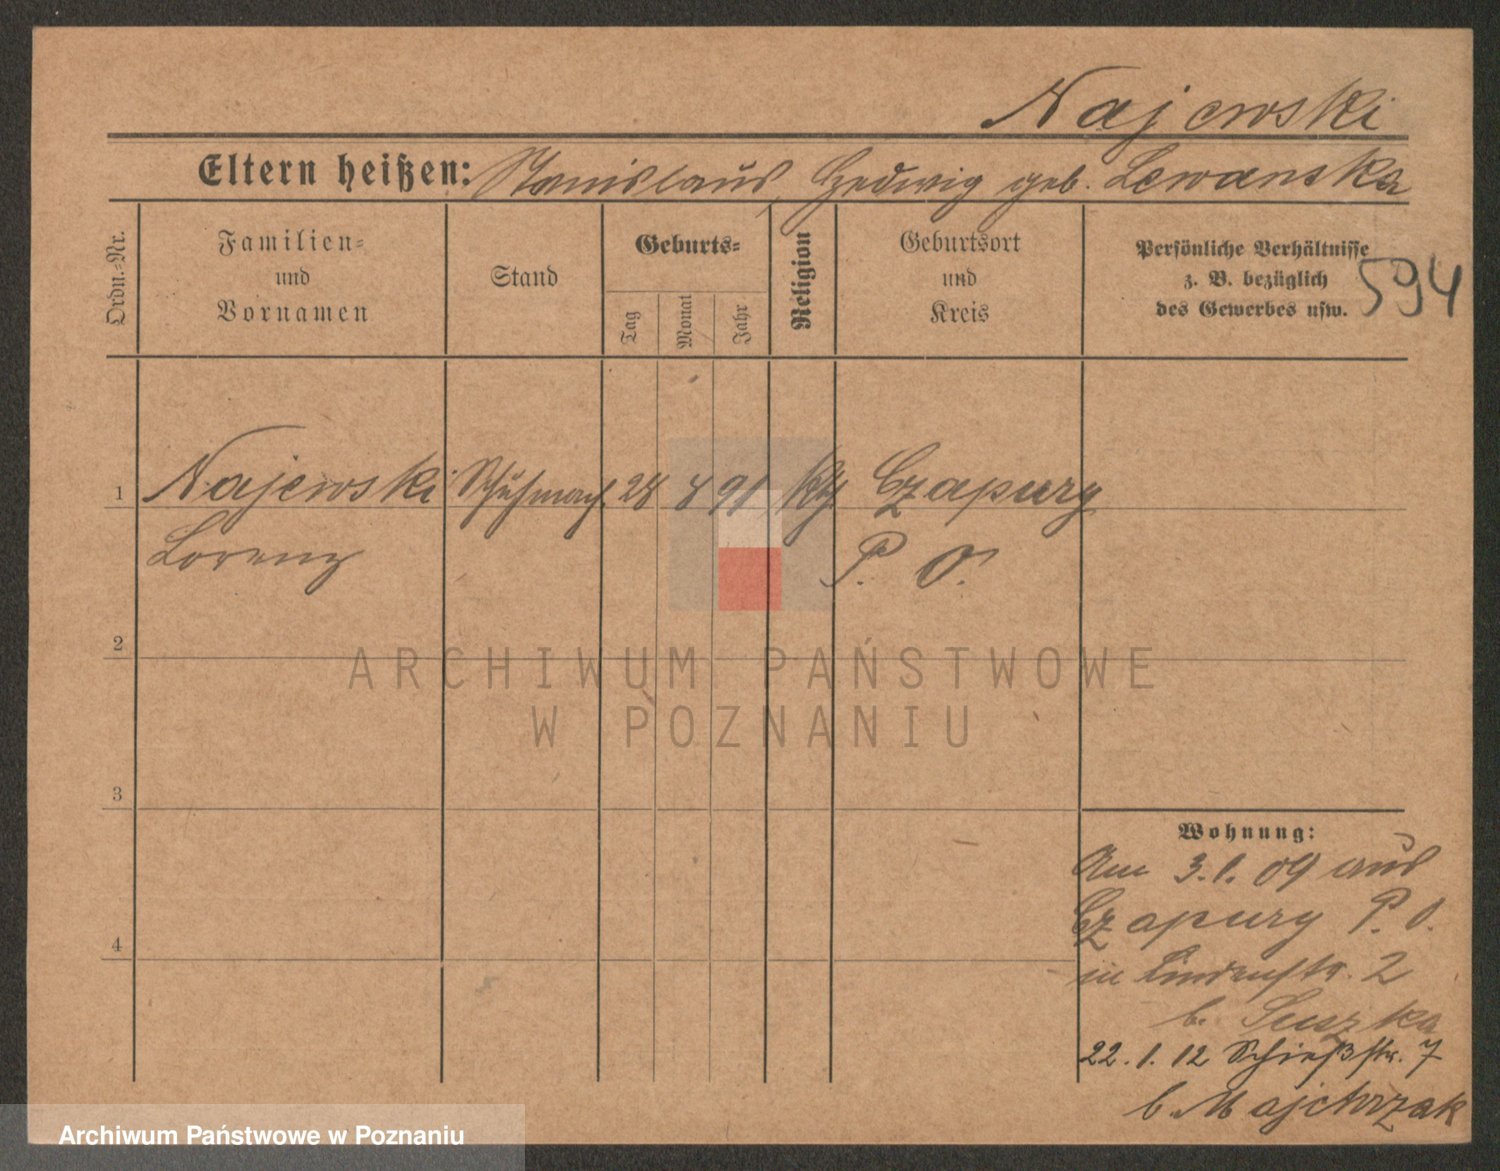 Najewski
Eltern heißen: Stanislaus, Hedwig geb. Lewanska
Ordn.-Nr.
Familien-
und
Vornamen
Stand
Geburts-
Tag
Monat
Jahr
Religion
Geburtsort
und
Kreis
Persönliche Verhältnisse
z. B. bezüglich
des Gewerbes usw.
594
1 Najewski Schuhmach. 28 8 91 Kth. Czapury
Lorenz P. O.
2
ARCHIWUM PAŃSTWOWE
W POZNANIU
3
Wohnung:
Am 3.1.09 aus
Czapury P. O.
4
in Lindenstr. 2
b. Suszka
22.1.12 Schießstr. 7
b. Majchrzak
Archiwum Państwowe w Poznaniu